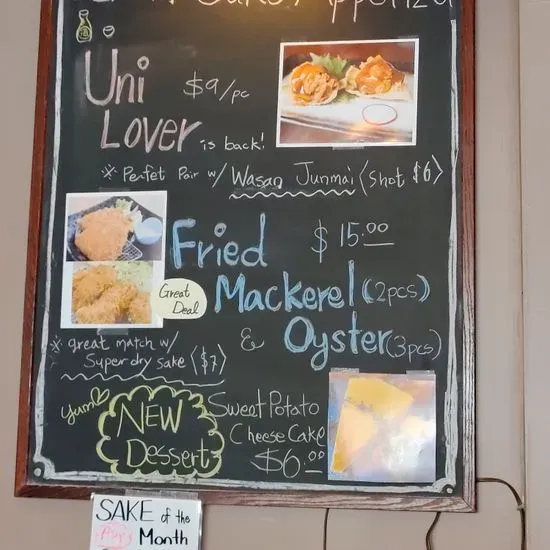 Sake Appetizer
Uni
Lover
$9/pc
is back!
※ Perfet Pair w/ Wasan Junmai (Shot $6)
Fried
$15.00
Mackerel (2pcs)
& Oyster (3pcs)
Great
Deal
※ great match w/
Super dry sake ($7)
yum
NEW
Dessert
Sweat Potato
Cheese Cake
$6.00
SAKE of the
Month